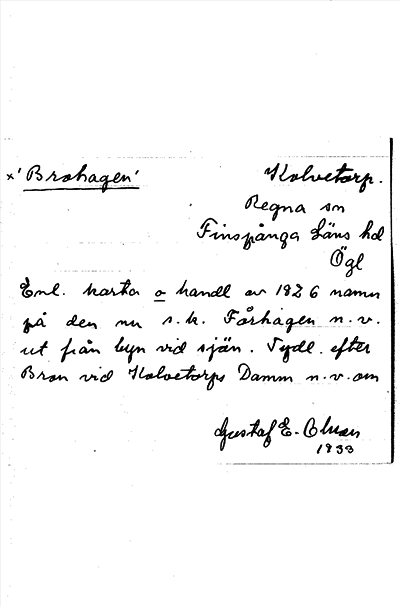 ×'Brohagen'
Kolvetorp.
Regna sn
Finspånga Läns hd
Ögl
Enl. karta o handl av 1826 namn
på den nu s.k. Fårhagen n.v.
ut från byn vid sjön. Tydl. efter
Bron vid Kolvetorps Damm n.v. om
Gustaf E.
1933